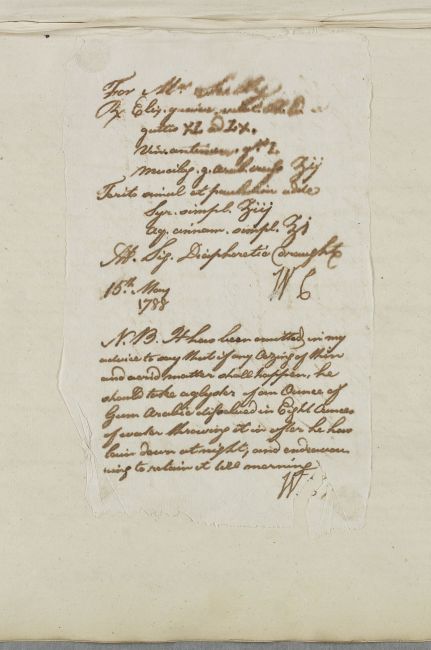 For Mr
Rx Elix. guaiac. volat.
guttis XL ad LX.
Vin. antimon. gtt
Mucilag. g. arab. ʒij
Terito simul et paulatim adde
Syr. simpl. ʒiij
aq. cinnam. simpl. ℥j
M. Sig. Diaphoretic draught
16th May W C
1788
N. B. It has been omitted in my
advice to say that if any oozing of thin
and acrid matter shall happen, he
should take a glyster of an Ounce of
Gum Arabic dissolved in Eight Ounces
of water throwing it in after he has
lain down at night, and endeavou-
ring to retain it till morning
W.